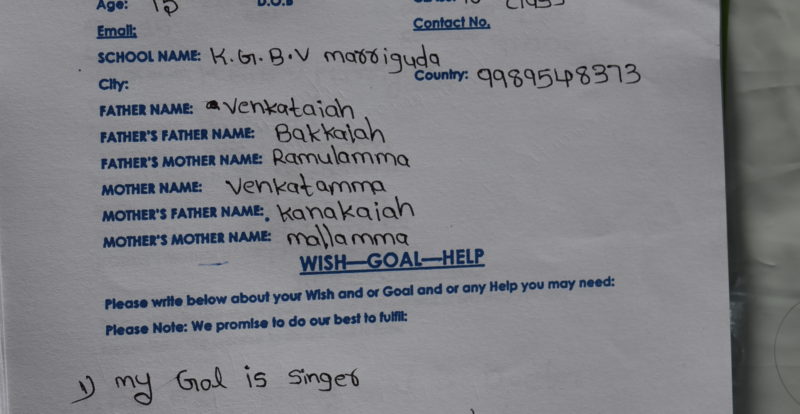 Age: 15 D.O.B
Email: Contact No.
SCHOOL NAME: K.G.B.V marriguda
City: Country: 9989548373
FATHER NAME: Venkataiah
FATHER'S FATHER NAME: Bakkaiah
FATHER'S MOTHER NAME: Ramulamma
MOTHER NAME: Venkatamma
MOTHER'S FATHER NAME: Kanakaiah
MOTHER'S MOTHER NAME: mallamma
WISH—GOAL—HELP
Please write below about your Wish and or Goal and or any Help you may need:
Please Note: We promise to do our best to fulfil:
1) my Goal is singer